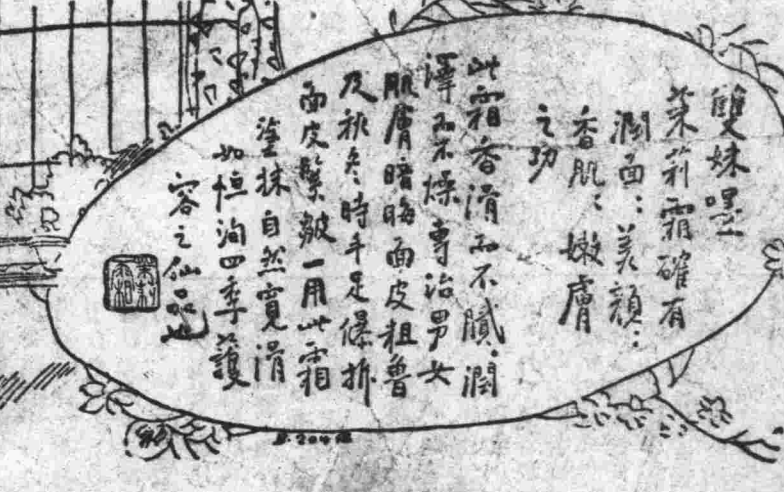 雙妹嘿
茉莉霜確有
潤面：美顏：
香肌：嫩膚
之功
此霜香滑而不膩·潤
澤而不燥專治男女
肌膚暗晦面皮粗魯
及秋冬時手足爆拆
面皮緊皺一用此霜
塗抹自然寬滑
如恒洵四季護
容之仙品也
茉莉
霜